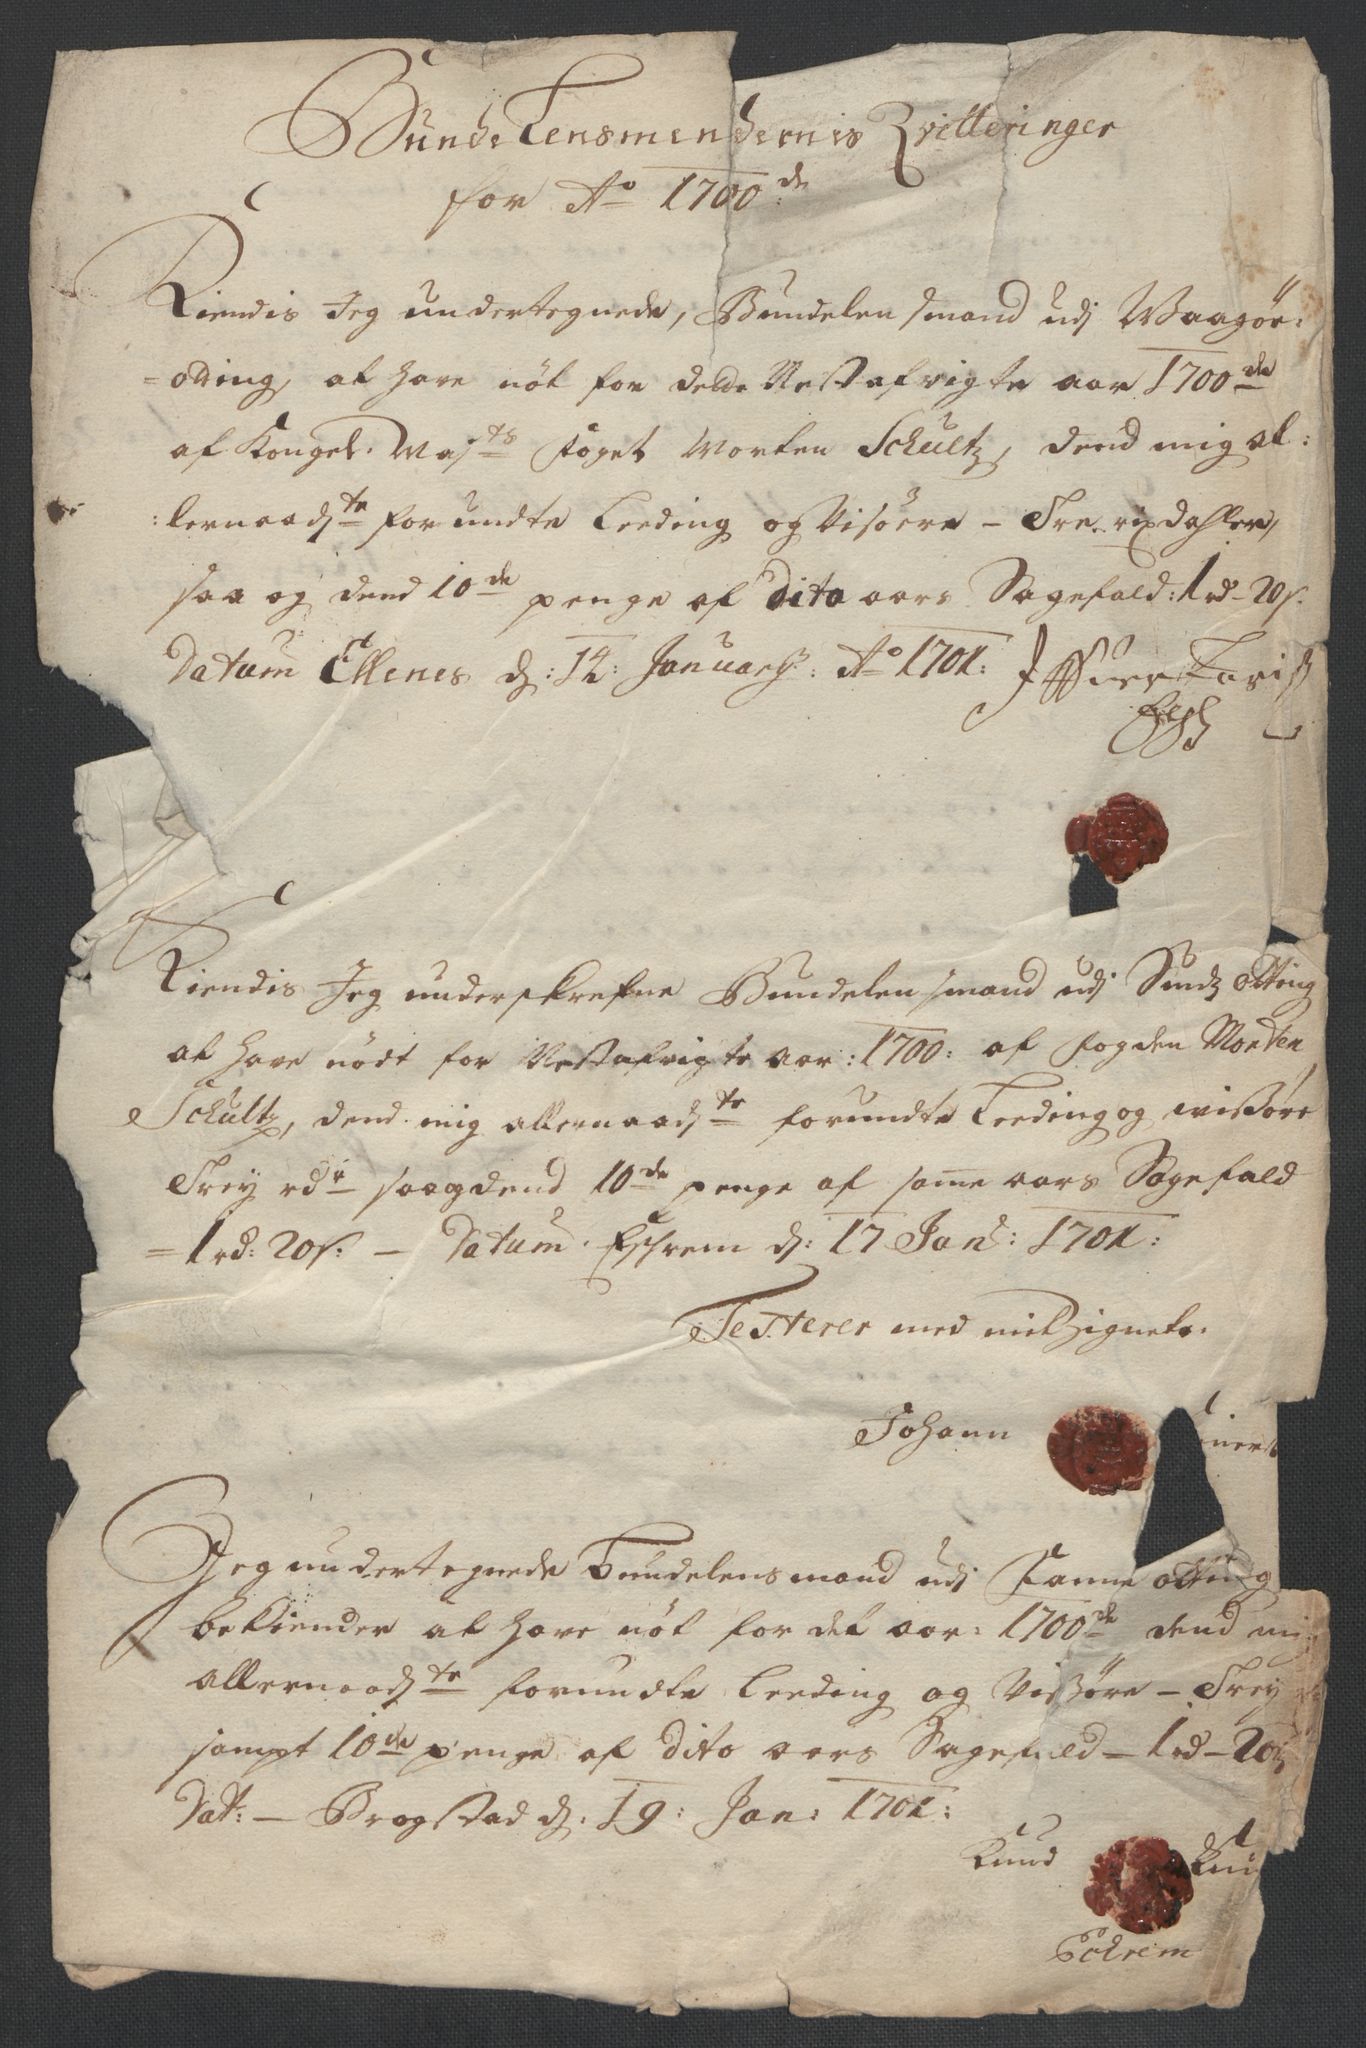 Bunde Lensmendernis Qvitteringer
for Ao 1700de
Kiendis Jeg undertegnede, Bundelensmand udj Waagøe:
=otting, at have nöt for dette Nestafvigte aar 1700de
af Kongel. Maÿts foget Morten Schultz, dend mig al:
:lernaadste forundte Leeding og Visöere – Tre rixdahler,
saa og dend 10de penge af dito aars Sagefald: 1 rd – 20 s.
Datum Ellenes d: 14: Januarÿ: Ao 1701:
Kiendis Jeg underskrefne Bundelensmand udj Sundz otting
at have nödt for Nestafvigte aar: 1700: af fogden Morten
Schultz, dend mig allernaadste forundte Leeding og wissöre
Trey rdr saa og dend 10de penge af same aars Sagefald
= 1 rd: 20 s: – Datum Eschrem d: 17 Jan: 1701:
Testerer med mit Zignete.
Johann
Jeg undertegnede Bundelensmand udj Fanne otting
bekiender at have nöt for det aar: 1700de dend mig
allernaadste forundte Leeding og Vissöre – Trey
sampt 10de penge af dito aars Sagefald – 1 rd – 20 s
Dat: – Brogstad d: 19: Jan: 1701:
Knud Knu
Eckrem